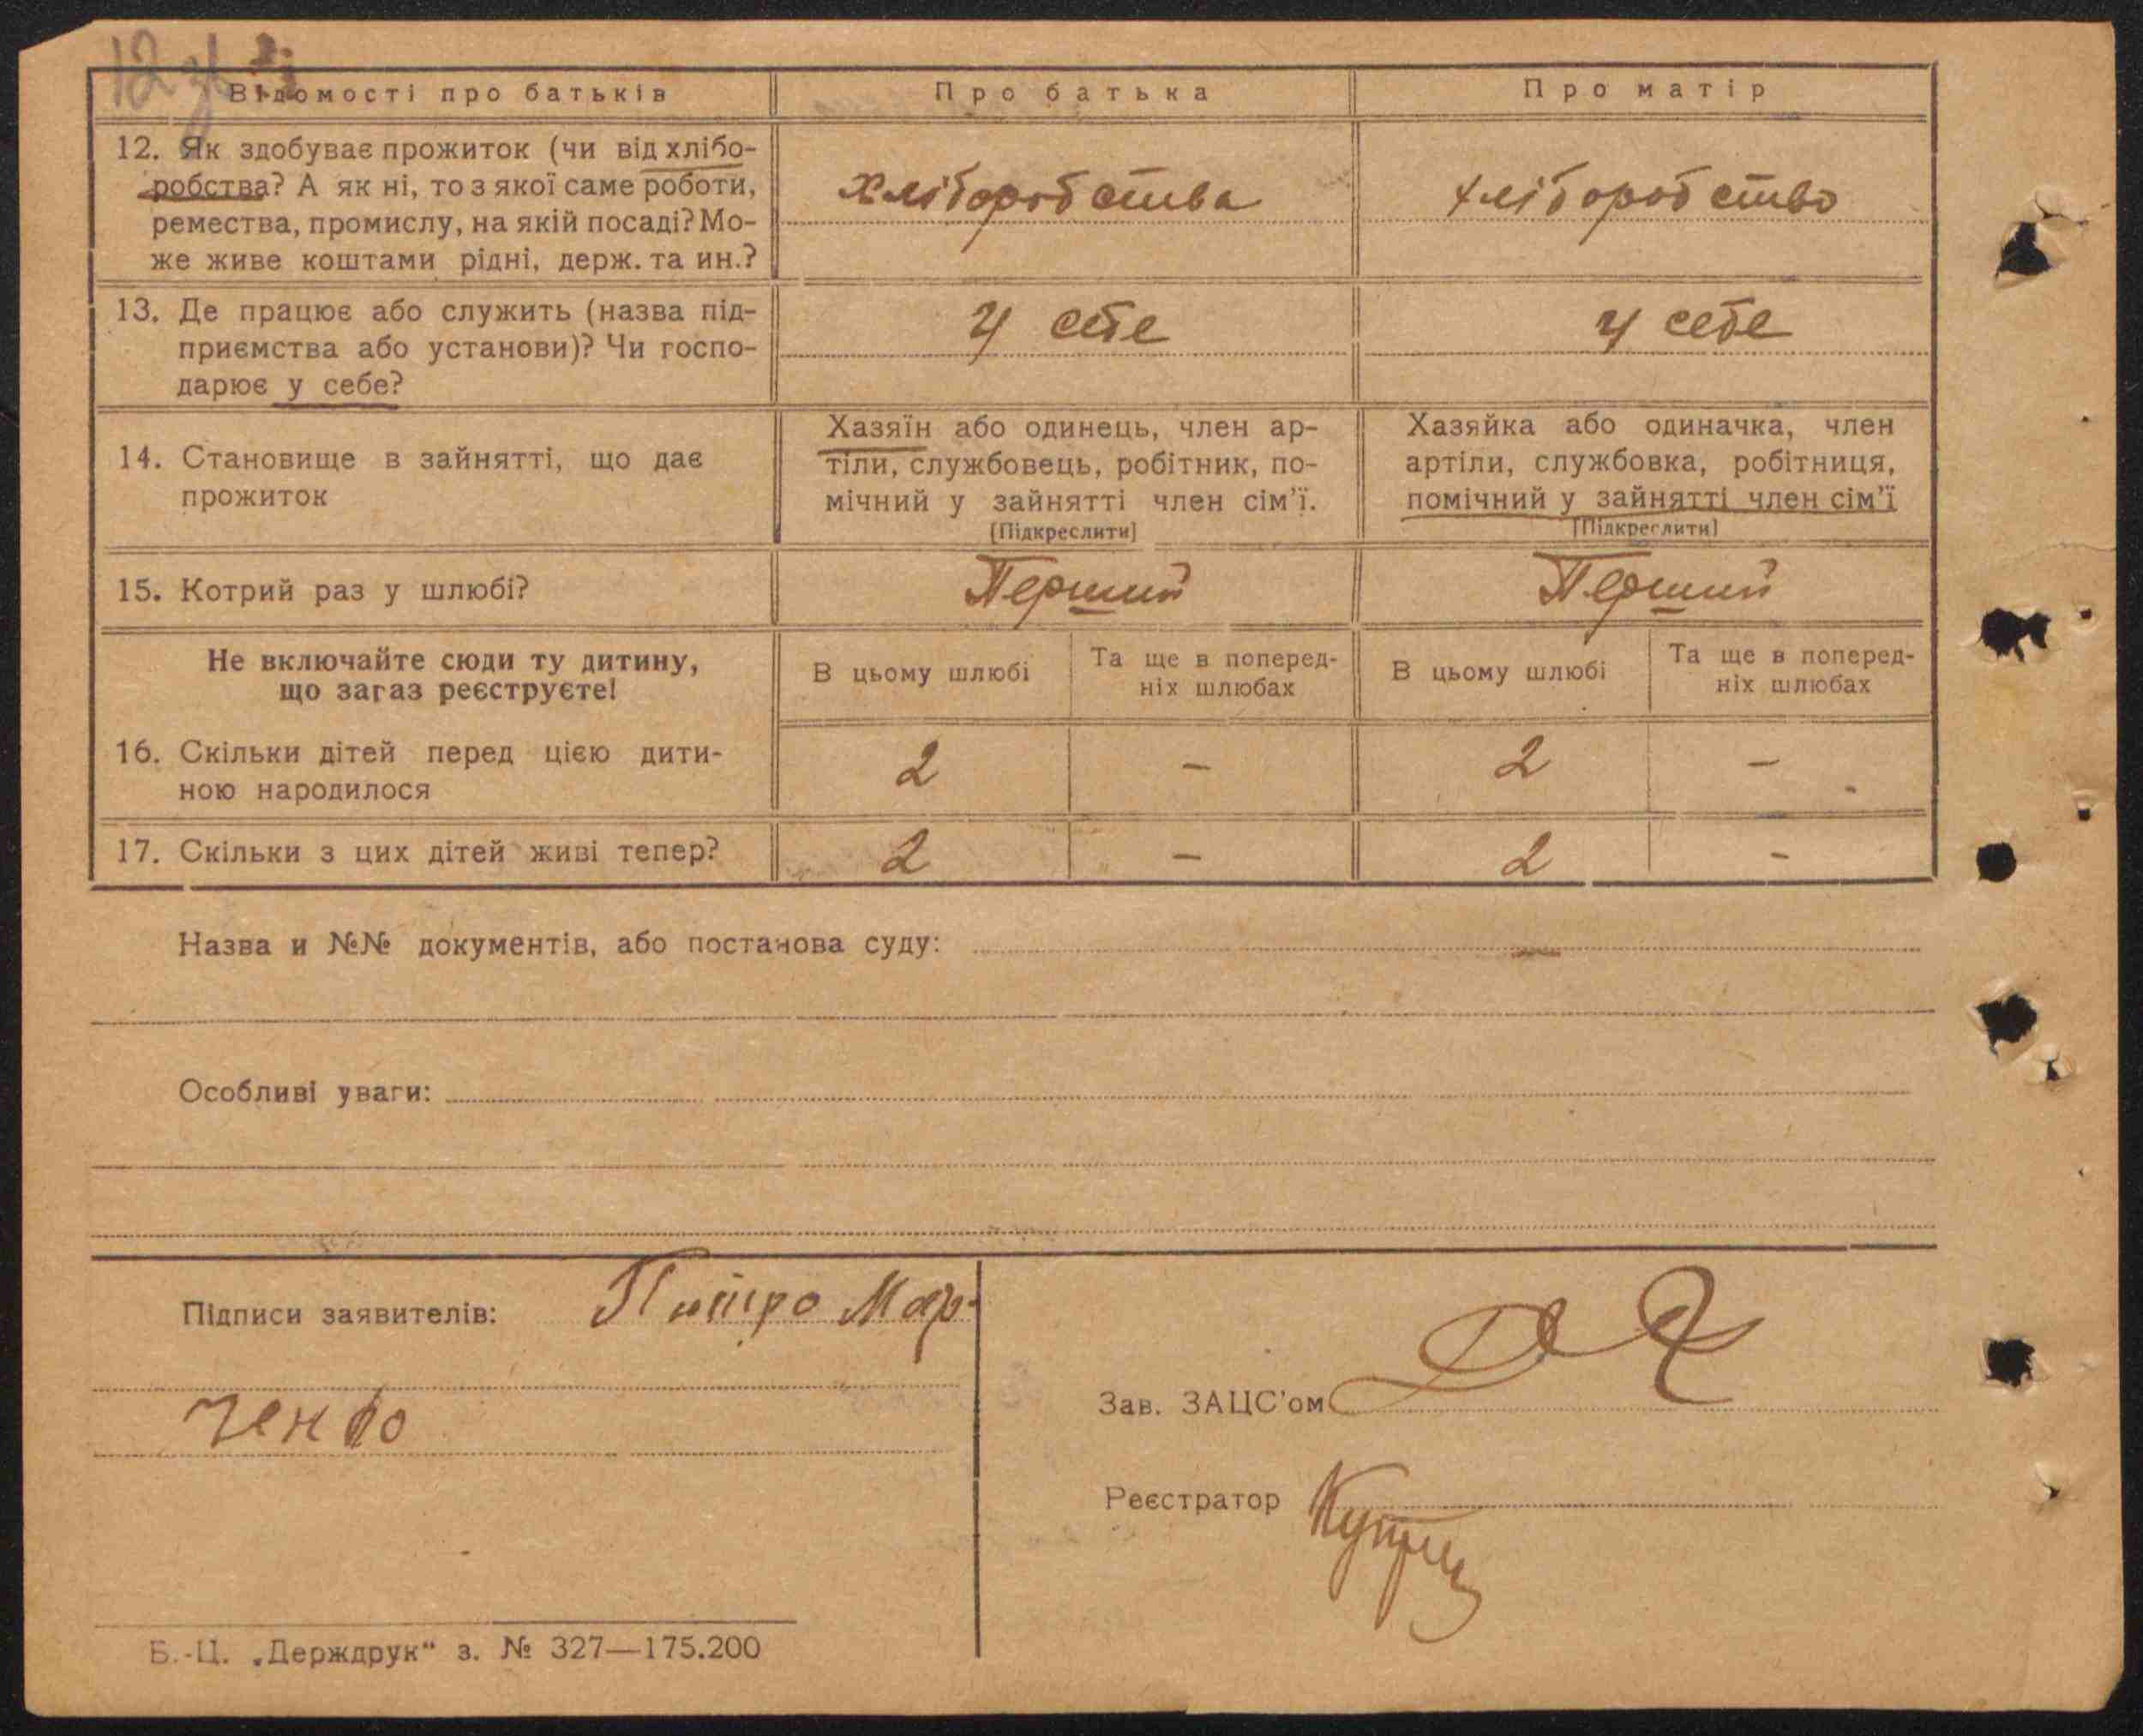 12 зв
Відомості про батьків
Про батька
Про матір
12. Як здобуває прожиток (чи від хлібо-
робства? А як ні, то з якої саме роботи,
ремества, промислу, на якій посаді? Мо-
же живе коштами рідні, держ. та ин.?
хліборобства
хліборобство
13. Де працює або служить (назва під-
приємства або установи)? Чи госпо-
дарює у себе?
у себе
у себе
14. Становище в зайнятті, що дає
прожиток
Хазяїн або одинець, член ар-
тіли, службовець, робітник, по-
мічний у зайнятті член сім'ї.
[Підкреслити]
Хазяйка або одиначка, член
артіли, службовка, робітниця,
помічний у зайнятті член сім'ї
[Підкреслити]
15. Котрий раз у шлюбі?
Перший
Перший
Не включайте сюди ту дитину,
що загаз реєструєте!
В цьому шлюбі
Та ще в поперед-
ніх шлюбах
В цьому шлюбі
Та ще в поперед-
ніх шлюбах
16. Скільки дітей перед цією дити-
ною народилося
2 - 2 -
17. Скільки з цих дітей живі тепер?
2 - 2 -
Назва и №№ документів, або постанова суду: —
Особливі уваги:
Підписи заявителів: Питро Мар-
ченко
Зав. ЗАЦС'ом
Реєстратор
Б.-Ц. „Держдрук“ з. № 327—175.200